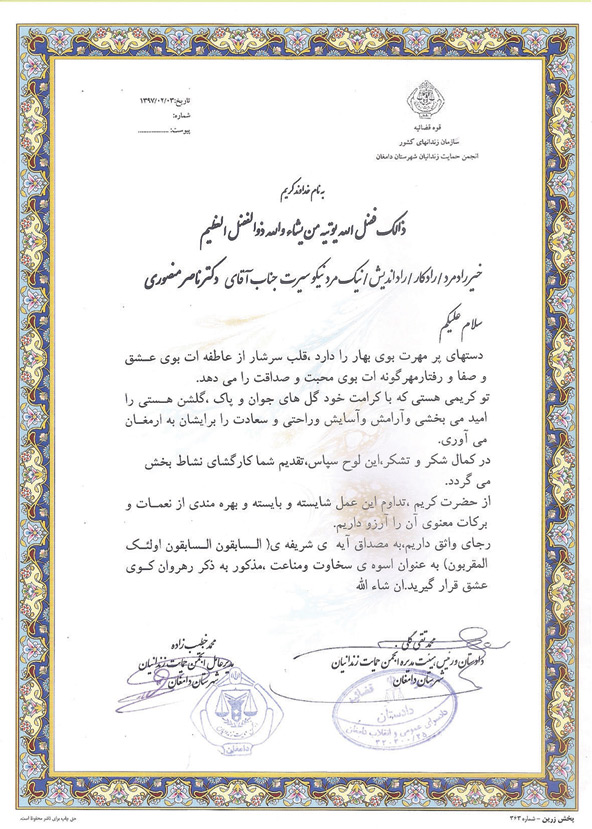 قوه قضائیه
سازمان زندانهای کشور
انجمن حمایت زندانیان شهرستان دامغان
تاریخ:۱۳۹۷/۰۲/۰۳
شماره:
پیوست: ...............
به نام خداوند کریم
ذالک فضل الله یوتیه من یشاء والله ذوالفضل العظیم
خیر رادمرد / رادکار / راد اندیش / نیک مرد نیکو سیرت جناب آقای دکتر ناصر منصوری
سلام علیکم
دستهای پر مهرت بوی بهار را دارد ،قلب سرشار از عاطفه ات بوی عشق
و صفا و رفتارمهرگونه ات بوی محبت و صداقت را می دهد.
تو کریمی هستی که با کرامت خود گل های جوان و پاک ،گلشن هستی را
امید می بخشی وآرامش وآسایش وراحتی و سعادت را برایشان به ارمغان
می آوری.
در کمال شکر و تشکر،این لوح سپاس،تقدیم شما کارگشای نشاط بخش
می گردد.
از حضرت کریم ،تداوم این عمل شایسته و بایسته و بهره مندی از نعمات و
برکات معنوی آن را آرزو داریم.
رجای واثق داریم،به مصداق آیه ی شریفه ی( السابقون السابقون اولئک
المقربون) به عنوان اسوه ی سخاوت ومناعت ،مذکور به ذکر رهروان کوی
عشق قرار گیرید.ان شاء الله
محمد تقی گلی
دادستان و رئیس هیئت مدیره انجمن حمایت زندانیان
شهرستان دامغان
محمد خطیب زاده
مدیرعامل انجمن حمایت زندانیان
شهرستان دامغان
دادستان
دادسرای عمومی و انقلاب دامغان
دامغان
پخش زرین - شماره ۳۶۳
حق چاپ برای ناشر محفوظ است.